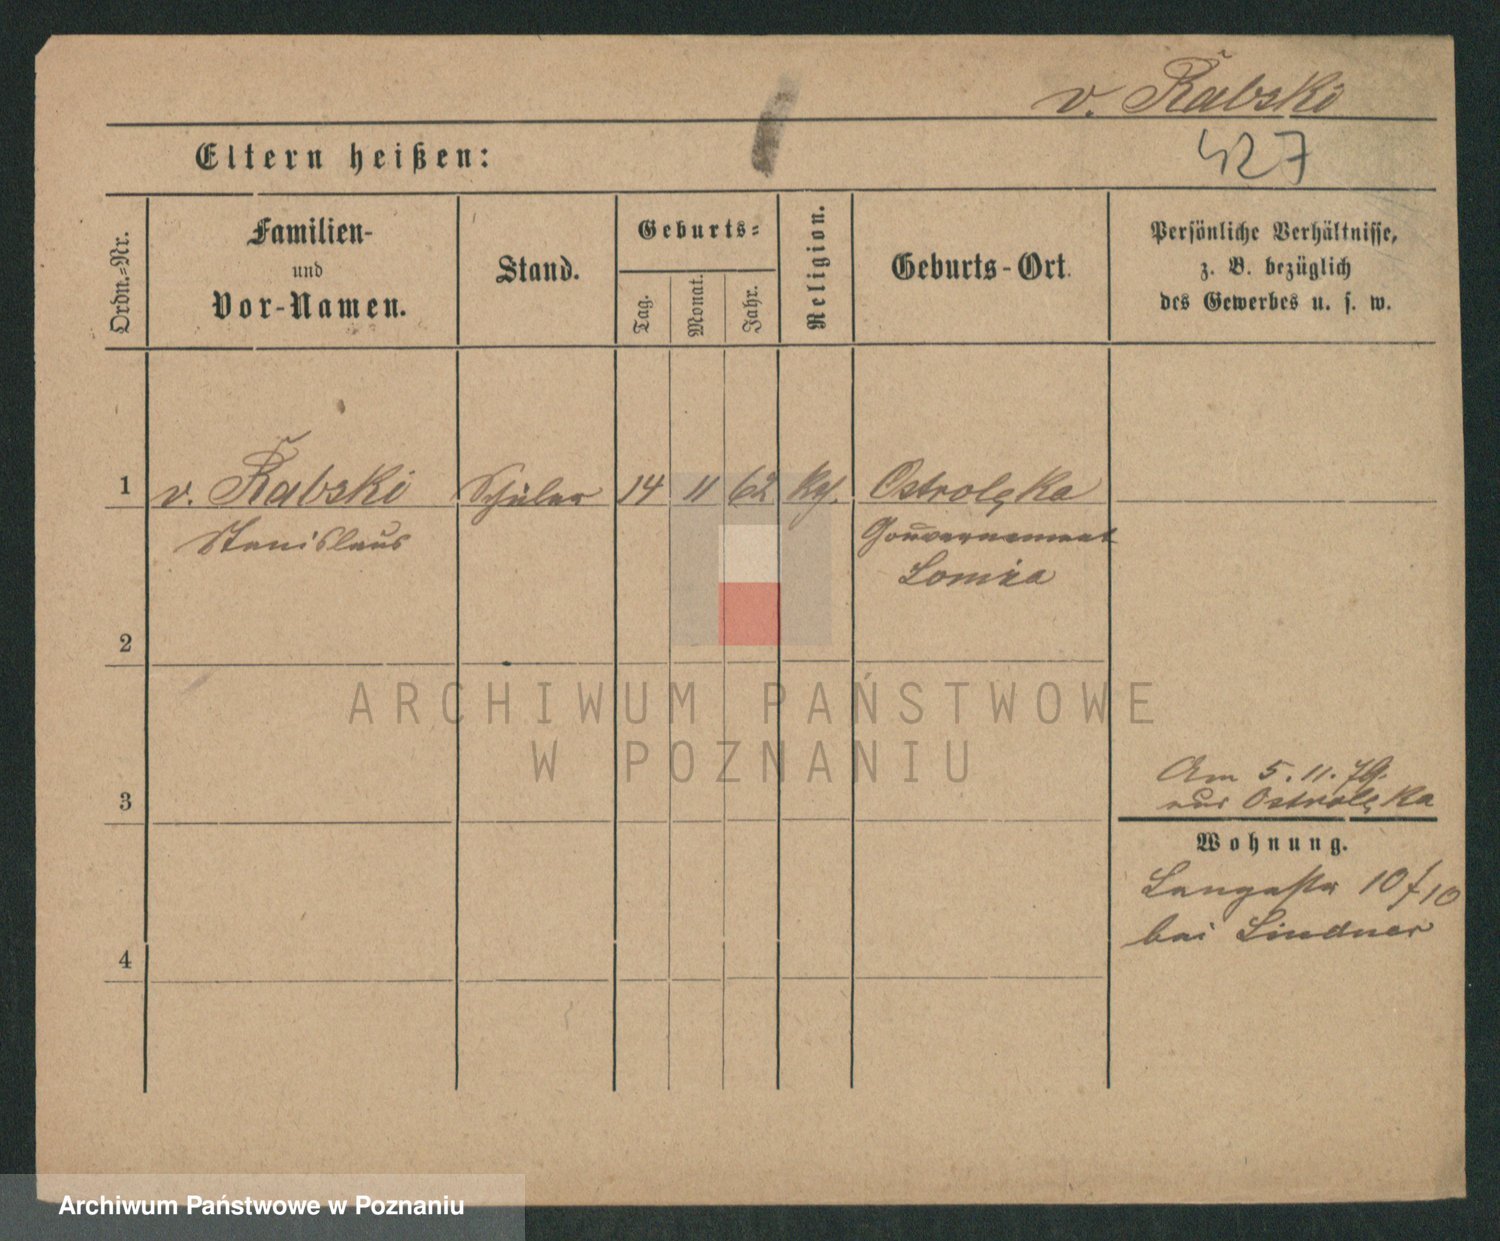 v. Rabski
Eltern heißen:
427
Ordn.-Nr.
Familien-
und
Vor-Namen.
Stand.
Geburts-
Tag.
Monat.
Jahr.
Religion.
Geburts-Ort.
Persönliche Verhältnisse,
z. B. bezüglich
des Gewerbes u. s. w.
1 v. Rabski Schüler 14 11 62 kth. Ostrolęka
Stanislaus Gouvernement
Lomża
2
3
Am 5. 11. 79.
aus Ostrolęka
Wohnung.
Langestr 10 f 10
bei Lindner
4
ARCHIWUM PAŃSTWOWE
W POZNANIU
Archiwum Państwowe w Poznaniu